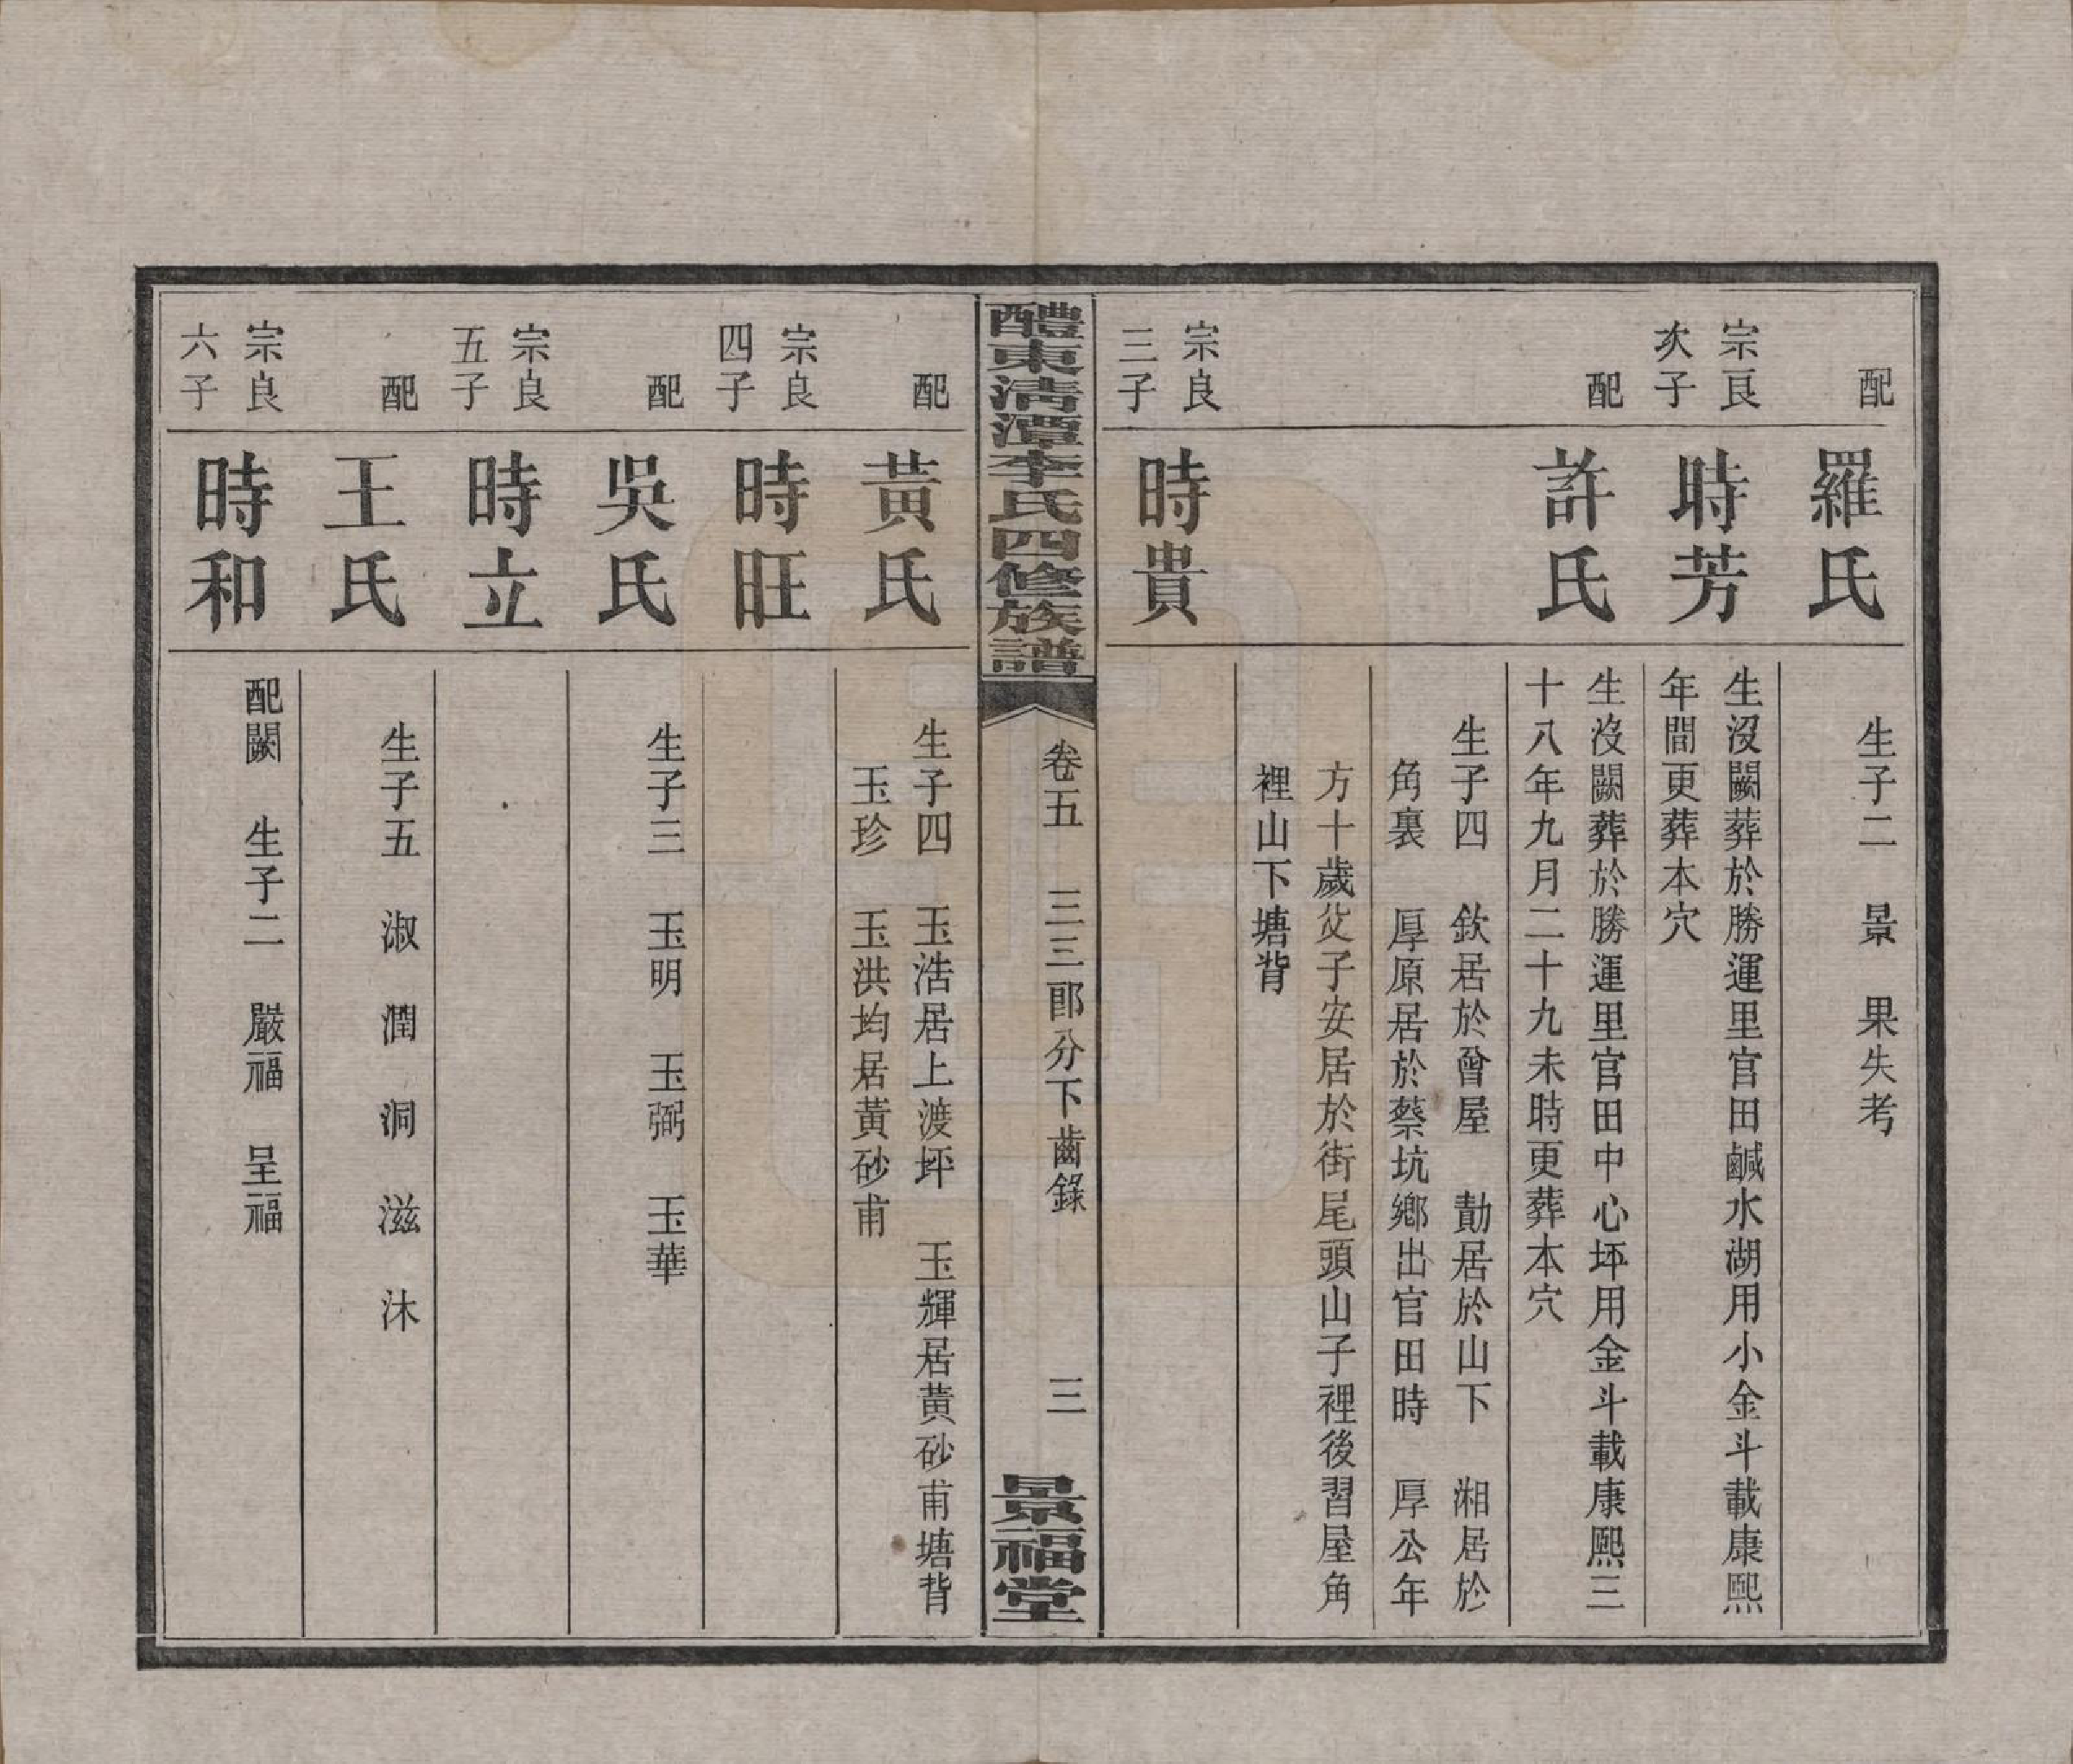 配
羅氏
生子二　景　果失考
宗良
次子
時芳
生沒闕葬於勝運里官田鹹水湖用小金斗載康熙
年間更葬本穴
配
許氏
生沒闕葬於勝運里官田中心坪用金斗載康熙三
十八年九月二十九未時更葬本穴
生子四　欽居於曾屋　勣居於山下　湘居於
角裏　厚原居於蔡坑鄉出官田時　厚公年
方十歲父子安居於街尾頭山子裡後習屋角
裡山下塘背
宗良
三子
時貴
醴東清潭李氏四修族譜
卷五　三三郎分下齒錄　三
景福堂
配
黃氏
生子四　玉浩居上渡坪　玉輝居黃砂甫塘背
玉珍　玉洪均居黃砂甫
宗良
四子
時旺
配
吳氏
生子三　玉明　玉弼　玉華
宗良
五子
時立
配
王氏
生子五　淑　潤　洞　滋　沐
宗良
六子
時和
配闕　生子二　嚴福　呈福